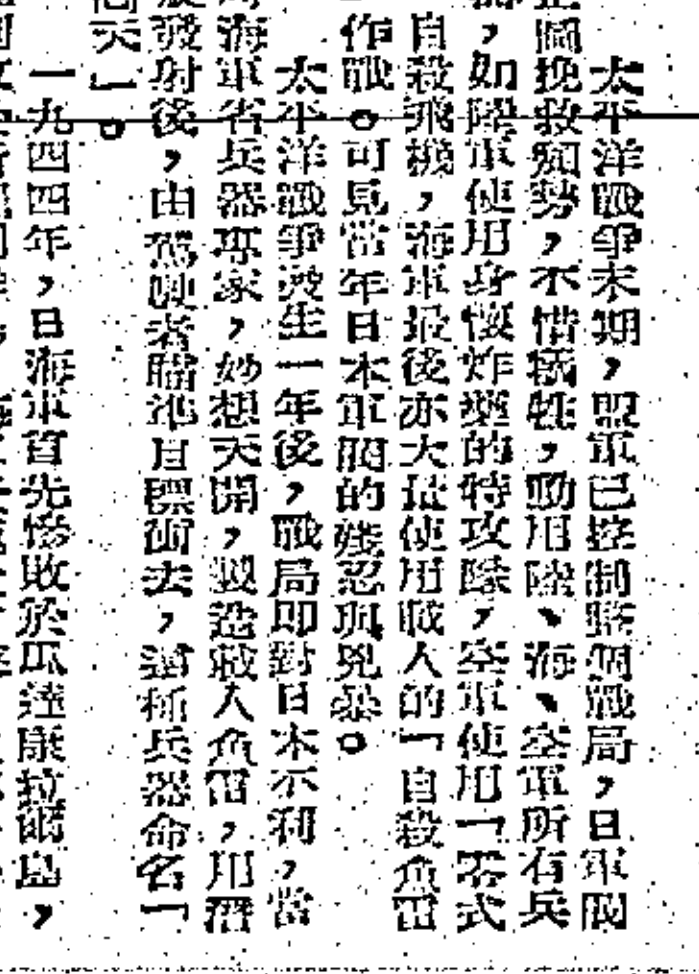 太平洋戰爭末期，盟軍已控制整個戰局，日軍閥
企圖挽救頹勢，不惜犧牲，動用陸、海、空軍所有兵
器，如陸軍使用身懷炸藥的特攻隊，空軍使用「零式
自殺飛機，海軍最後亦大量使用載人的「自殺魚雷
」作戰。可見當年日本軍閥的殘忍與兇暴。
太平洋戰爭發生一年後，戰局即對日本不利，當
海軍省兵器專家，妙想天開，製造載人魚雷，用潛
發射後，由駕駛者瞄準目標衝去，這種兵器命名「
回天」。
一九四四年，日海軍首先慘敗於瓜達康拉爾島，